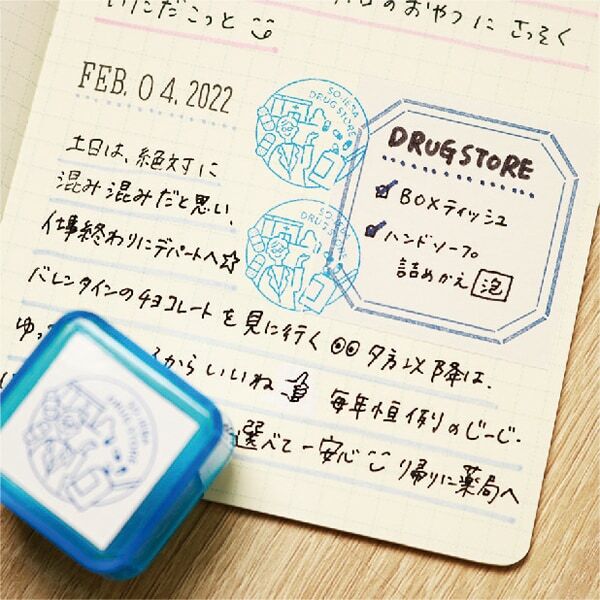 いただこっと
のおやつに さっそく
FEB. 04. 2022
土日は、絶対に
混み混みだと思い、
仕事終わりにデパートへ☆
バレンタインのチョコレートを見に行く 夕方以降は、
ゆっ からいいね 毎年恒例のじーじ.
選べて一安心 帰りに薬局へ
SOJESA
DRUGSTORE
DRUGSTORE
BOXティッシュ
ハンドソープ
詰めかえ 泡
DRUGSTORE
DRUGSTORE